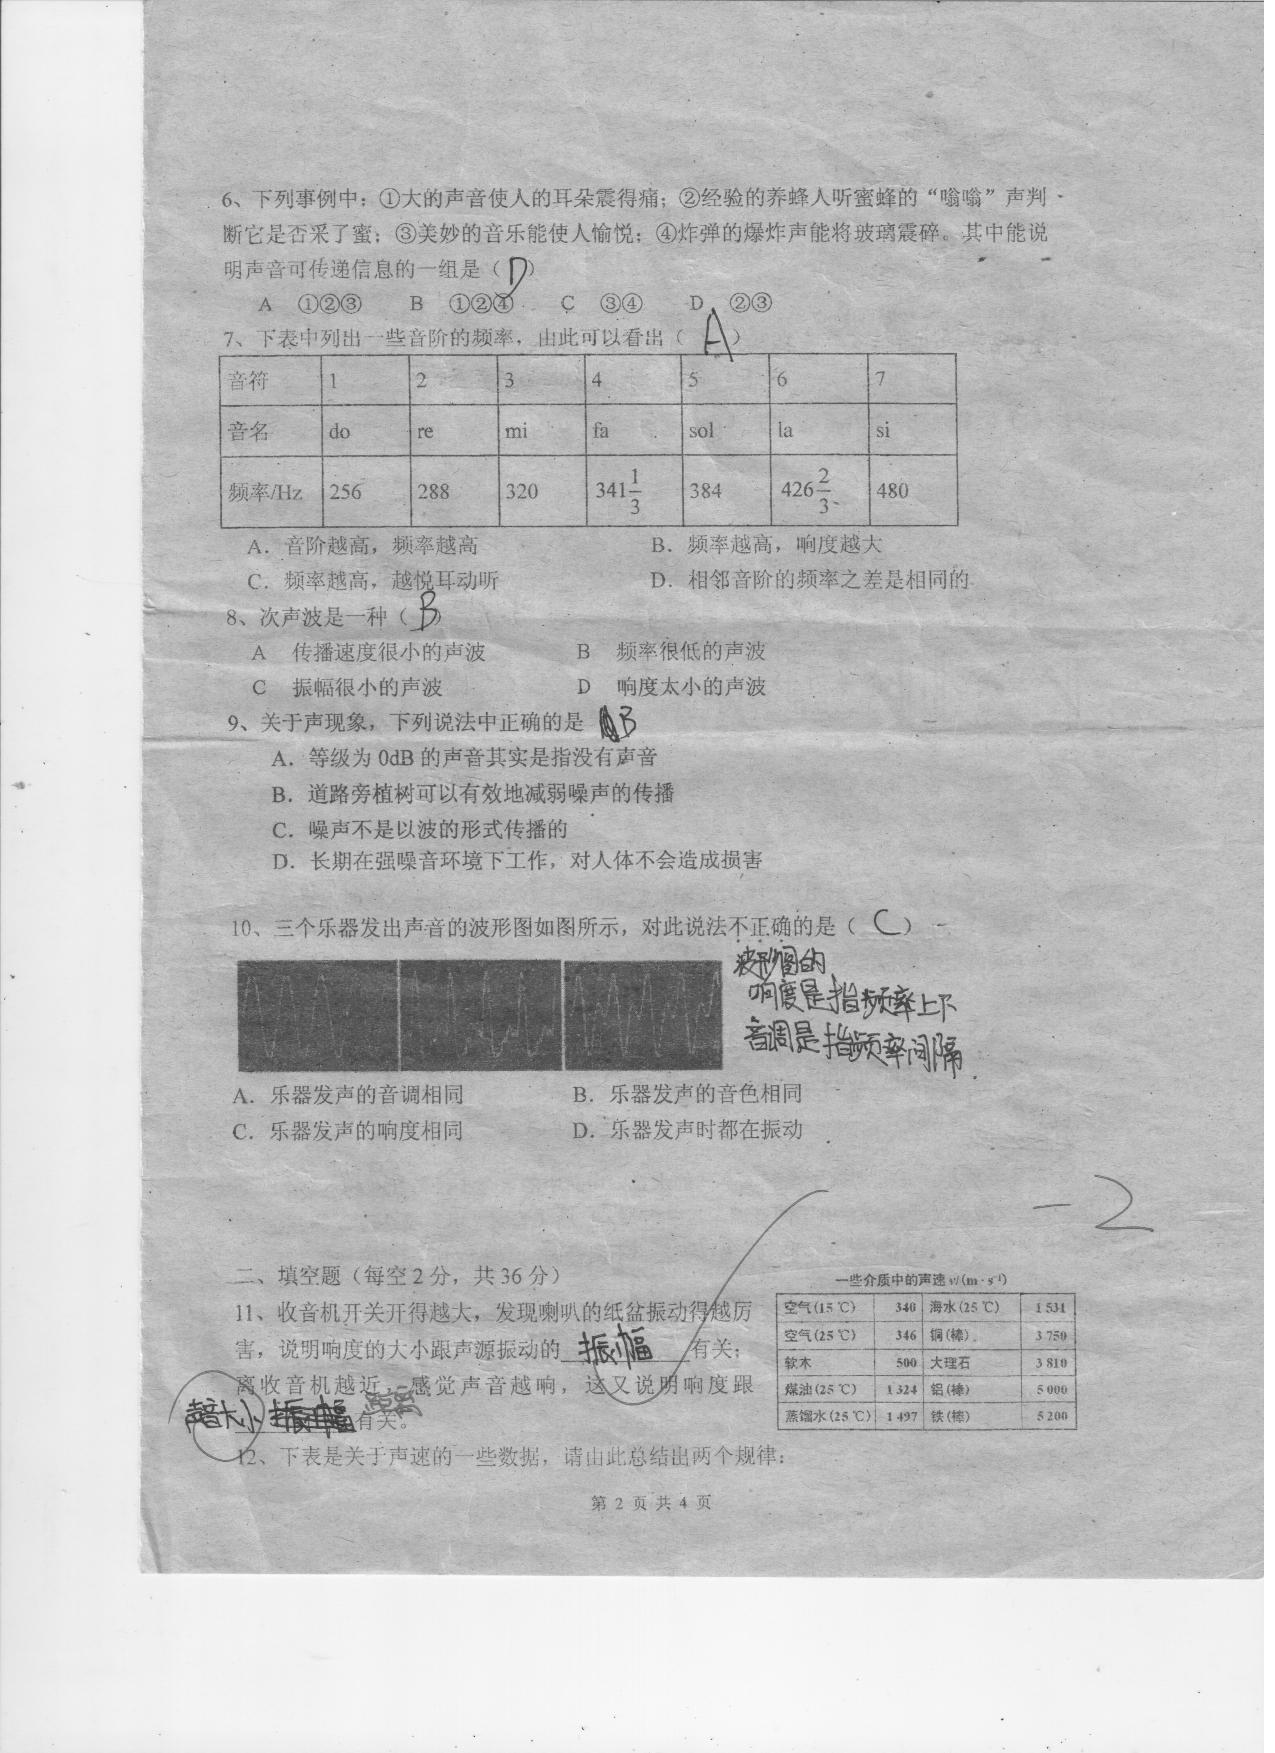 6、下列事例中：①大的声音使人的耳朵震得痛；②经验的养蜂人听蜜蜂的“嗡嗡”声判
断它是否采了蜜；③美妙的音乐能使人愉悦；④炸弹的爆炸声能将玻璃震碎。其中能说
明声音可传递信息的一组是（D）
A ①②③ B ①②④ C ③④ D ②③
7、下表中列出一些音阶的频率，由此可以看出（A）
音符 1 2 3 4 5 6 7
音名 do re mi fa sol la si
频率/Hz 256 288 320 341 1/3 384 426 2/3 480
A．音阶越高，频率越高 B．频率越高，响度越大
C．频率越高，越悦耳动听 D．相邻音阶的频率之差是相同的
8、次声波是一种（B）
A 传播速度很小的声波 B 频率很低的声波
C 振幅很小的声波 D 响度太小的声波
9、关于声现象，下列说法中正确的是 B
A．等级为0dB的声音其实是指没有声音
B．道路旁植树可以有效地减弱噪声的传播
C．噪声不是以波的形式传播的
D．长期在强噪音环境下工作，对人体不会造成损害
10、三个乐器发出声音的波形图如图所示，对此说法不正确的是（C）
波形图的
响度是指频率上下
音调是指频率间隔
A．乐器发声的音调相同 B．乐器发声的音色相同
C．乐器发声的响度相同 D．乐器发声时都在振动
-2
二、填空题（每空2分，共36分）
11、收音机开关开得越大，发现喇叭的纸盆振动得越厉
害，说明响度的大小跟声源振动的 振幅 有关；
离收音机越近，感觉声音越响，这又说明响度跟
声音大小 振幅 距离 有关。
一些介质中的声速 v/(m·s⁻¹)
空气(15℃) 340 海水(25℃) 1 531
空气(25℃) 346 铜(棒) 3 750
软木 500 大理石 3 810
煤油(25℃) 1 324 铝(棒) 5 000
蒸馏水(25℃) 1 497 铁(棒) 5 200
12、下表是关于声速的一些数据，请由此总结出两个规律：
第 2 页 共 4 页